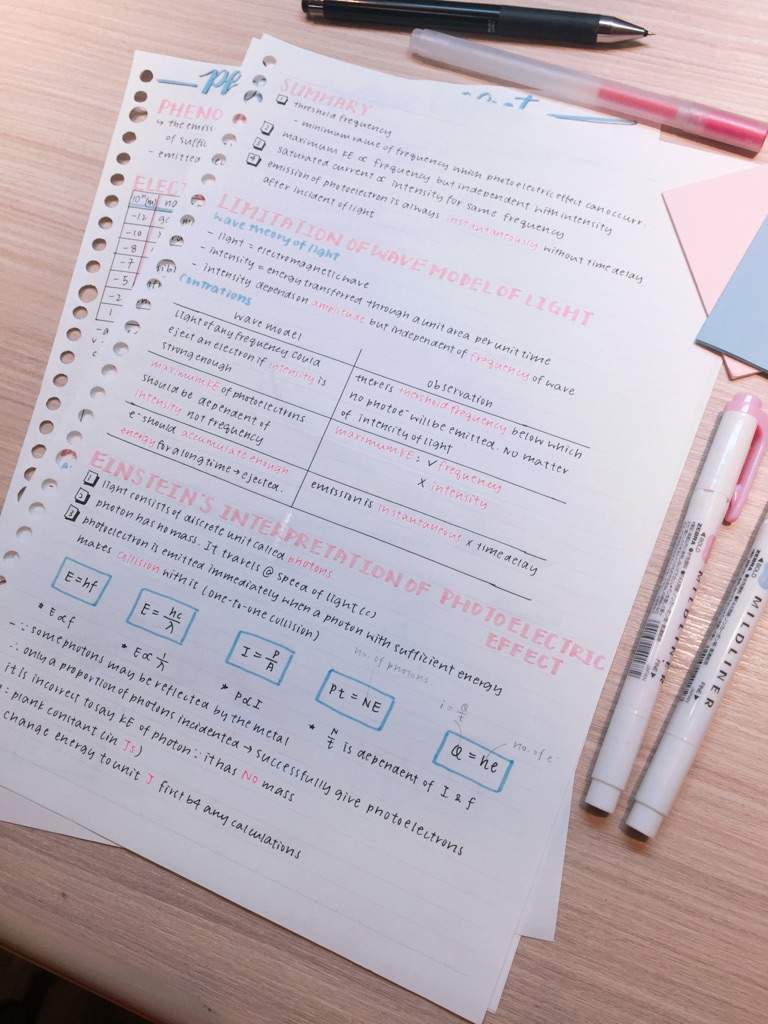 PHENO
↳ the emiss
of suffic
- emitted
ELECT
-12
-10
-8
-7
-5
-2
1
SUMMARY
1 threshold frequency
- minimum value of frequency which photoelectric effect can occurr.
2 maximum KE ∝ frequency but independent with intensity
3 saturated current ∝ intensity for same frequency
4 emission of photoelectron is always instantaneously without time delay
after incident of light
LIMITATION OF WAVE MODEL OF LIGHT
wave theory of light
- light = electromagnetic wave
- intensity = energy transferred through a unit area per unit time
- intensity depends on amplitude but independent of frequency of wave
contrations
wave model
light of any frequency could
eject an electron if intensity is
strong enough
maximum KE of photoelectrons
should be dependent of
intensity not frequency
e⁻ should accumulate enough
energy for a long time → ejected.
observation
there is threshold frequency below which
no photoe⁻ will be emitted. No matter
of intensity of light
maximum KE : ✓ frequency
X intensity
emission is instantaneous x time delay
EINSTEIN'S INTERPRETATION OF PHOTOELECTRIC
EFFECT
1 light consists of discrete unit called photons
2 photon has no mass. It travels @ speed of light (c)
3 photoelectron is emitted immediately when a photon with sufficient energy
makes collision with is (one-to-one collision)
E=hf
E = hc/λ
I = P/A
pt = NE
no. of photons
i = Q/t
Q = ne
no. of e
* E∝f
* E∝ 1/λ
* P∝I
* N/t is dependent of I & f
- ∵ some photons may be reflected by the metal
∴ only a proportion of photons incidented → successfully give photoelectrons
it is incorrect to say KE of photon ∵ it has NO mass
: plank constant (in Js)
change energy to unit J first b4 any calculations
ZEBRA
MILDLINER
MILDLINER